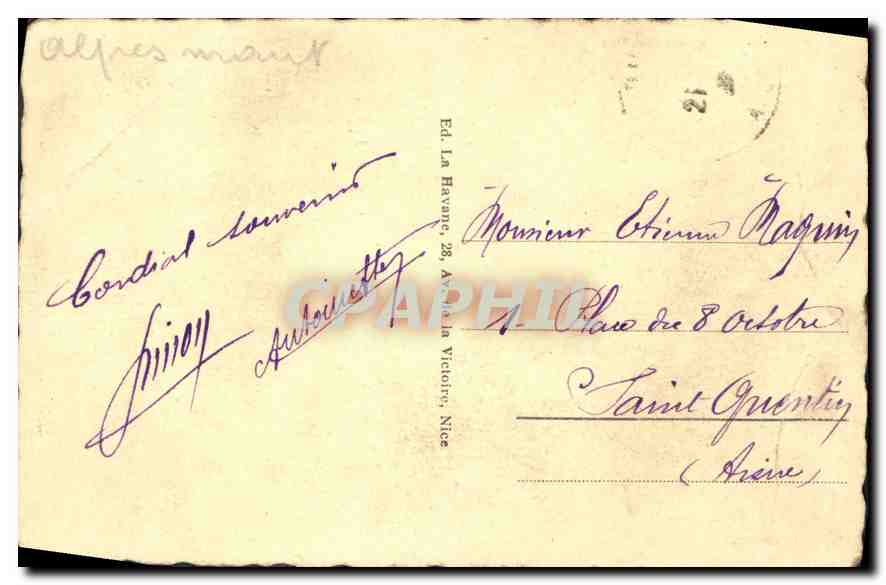 alpes marit
Cordial souvenir
Antoinette
Ed. La Havane, 28, Av. de la Victoire, Nice
21
Monsieur Etienne Maquin
1 Place du 8 Octobre
Saint Quentin
(Aisne)
CPAPHIL